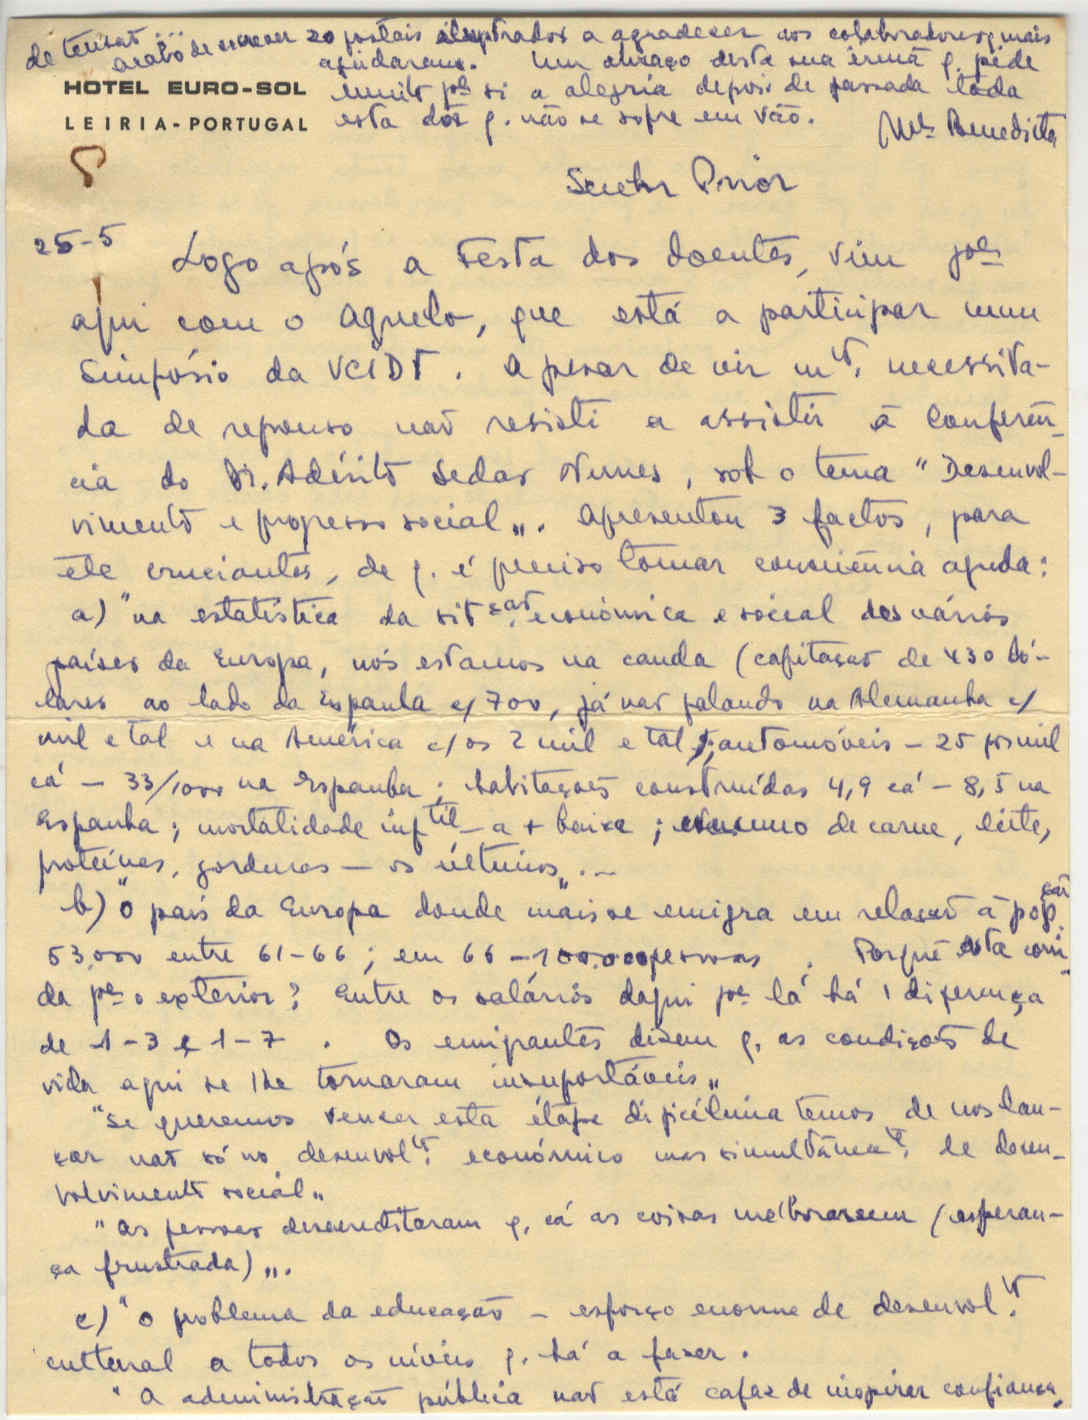 de tensão ...
acabo de escrever 20 postais ilustrados a agradecer aos colaboradores q. mais
ajudaram. Um abraço desta sua irmã q. pede
HOTEL EURO-SOL
muito pª si a alegria depois de passada toda
LEIRIA-PORTUGAL
esta dôr q. não se sofre em vão.
Mª Benedicta
Senhor Prior
25-5
Logo após a Festa dos doentes, vim pª
aqui com o Agnelo, que está a participar num
Simpósio da VCIDT. Apesar de vir mtº. necessita-
da de repouso não resisti a assistir à Conferên-
cia do Dr. Adérito Sedas Nunes, sob o tema "Desenvol-
vimento e progresso social". Apresentou 3 factos, para
ele cruciantes, de q. é preciso tomar consciência aguda:
a) "na estatística da sitção. económica e social dos vários
países da Europa, nós estamos na cauda (capitação de 430 dó-
lares ao lado da Espanha c/ 700, já não falando na Alemanha c/
mil e tal e na América c/ os 2 mil e tal; automóveis - 25 por mil
cá - 33/1000 na Espanha; habitações construídas 4,9 cá - 8,5 na
Espanha; mortalidade inftil - a + baixa; consumo de carne, leite,
proteínas, gorduras - os últimos". -
b) "O país da Europa donde mais se emigra em relação à popção.
53.000 entre 61-66; em 66 - 100.000 pessoas. Porquê esta corri-
da pª o exterior? Entre os salários daqui pª lá há 1 diferença
de 1-3 e 1-7. Os emigrantes dizem q. as condições de
vida aqui se lhe tornaram insuportáveis"
"Se queremos vencer esta étape dificílima temos de nos lan-
çar não só no desenvoltº. económico mas simultâneatº. de desen-
volvimento social"
"As pessoas desacreditaram q. cá as coisas melhorassem (esperan-
ça frustrada)".
c) "O problema da educação - esforço enorme de desenvoltº.
cultural a todos os níveis q. há a fazer.
"A administração pública não está capaz de inspirar confiança,